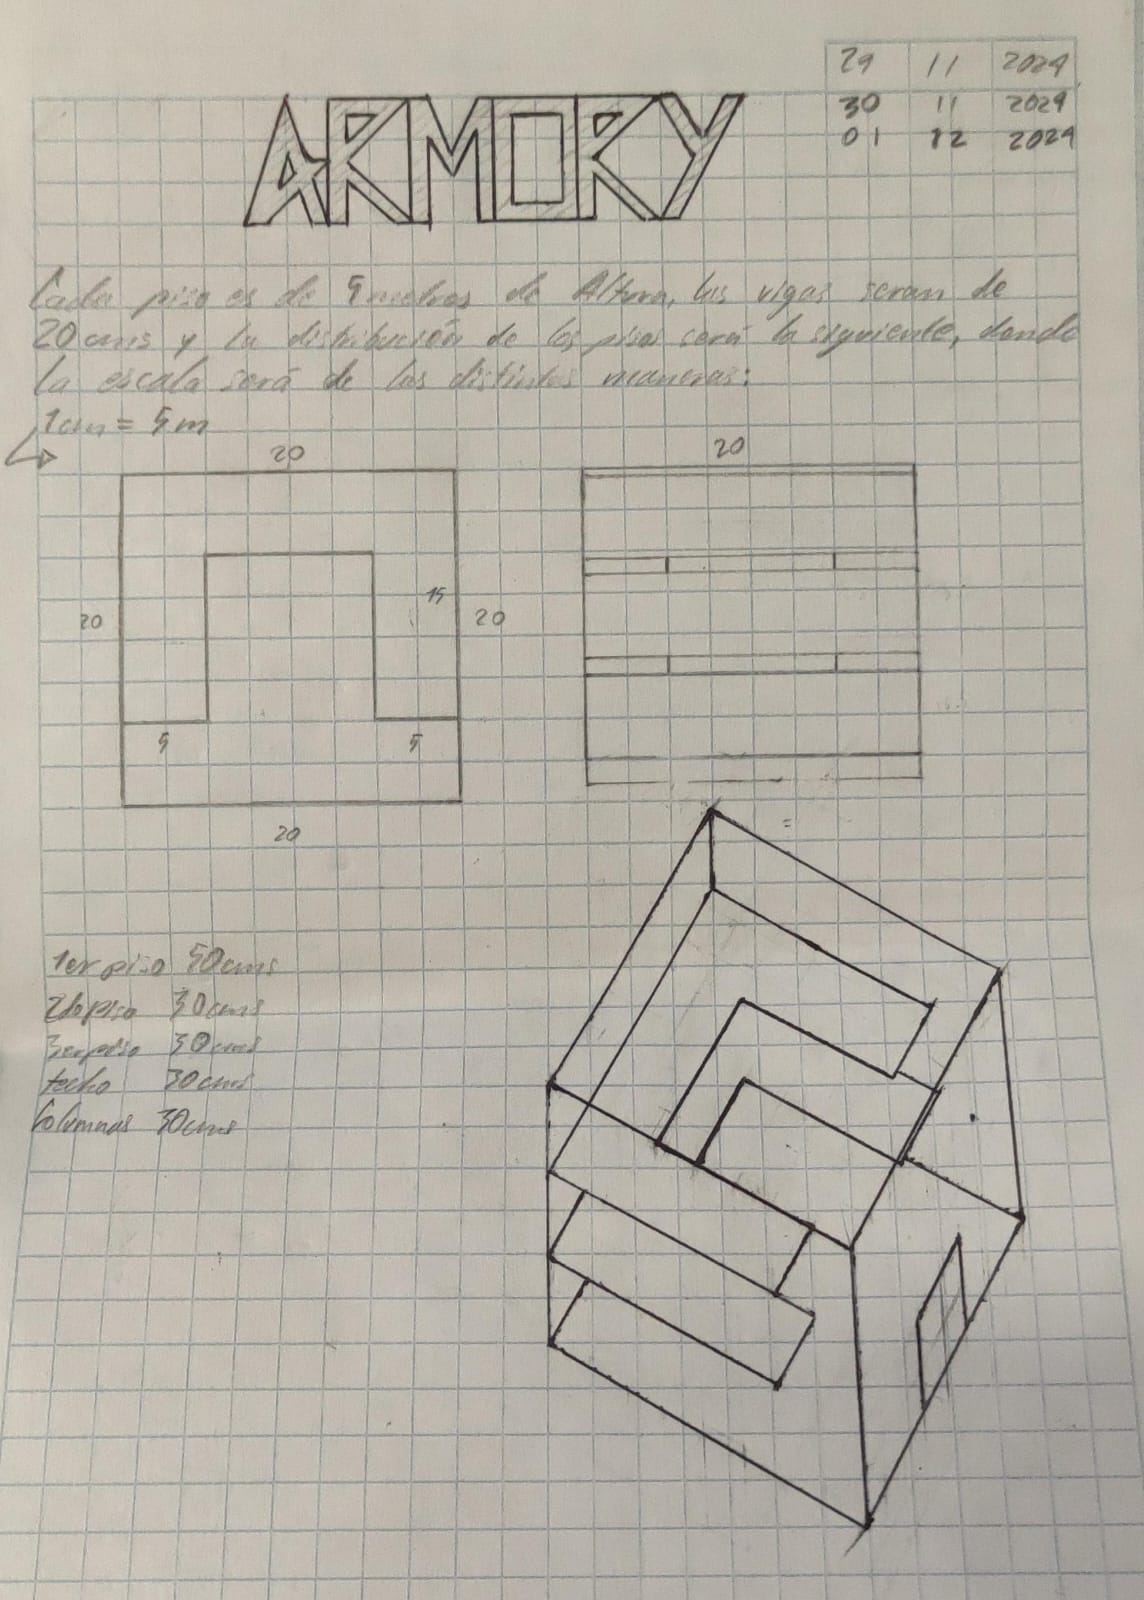 29 11 2024
30 11 2024
01 12 2024
ARMORY
Cada piso es de 5 metros de Altura, las vigas seran de
20 cms y la distribución de los pisos será la siguiente, donde
la escala será de las distintas maneras:
1cm = 5m
20 20
15
20 20
5 5
20
1er piso 50cms
2do piso 30cms
3er piso 30cms
techo 30cms
Columnas 30cms